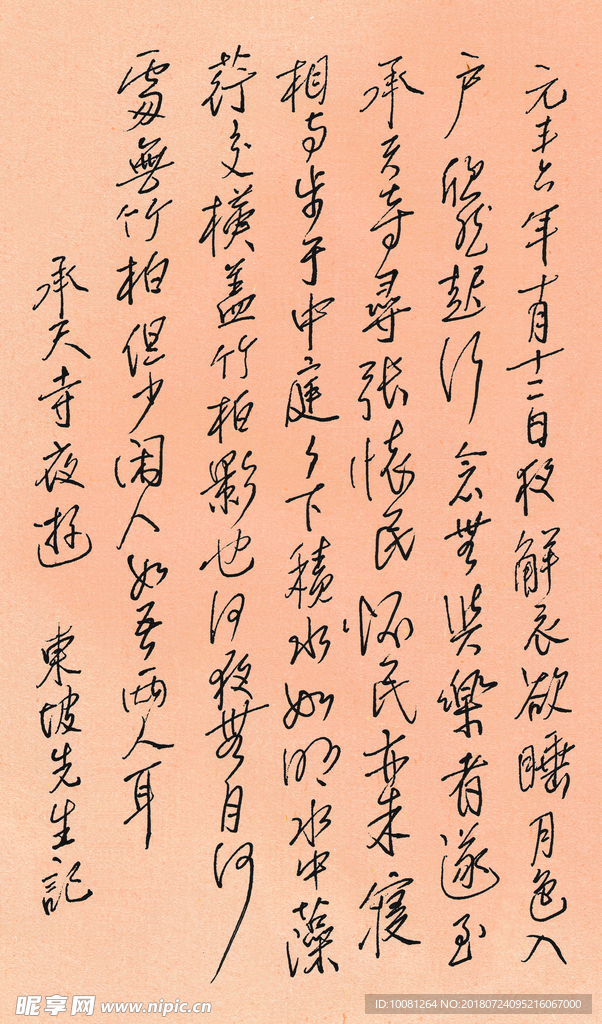 元丰六年十月十二日夜解衣欲睡月色入
户欣然起行念無與樂者遂至
承天寺尋張懷民懷民亦未寢
相与步于中庭々下積水如明水中藻
荇交橫蓋竹柏影也何夜無月何
處無竹柏但少闲人如吾兩人耳
承天寺夜遊 東坡先生記
昵享网 www.nipic.cn
ID:10081264 NO:20180724095216067000